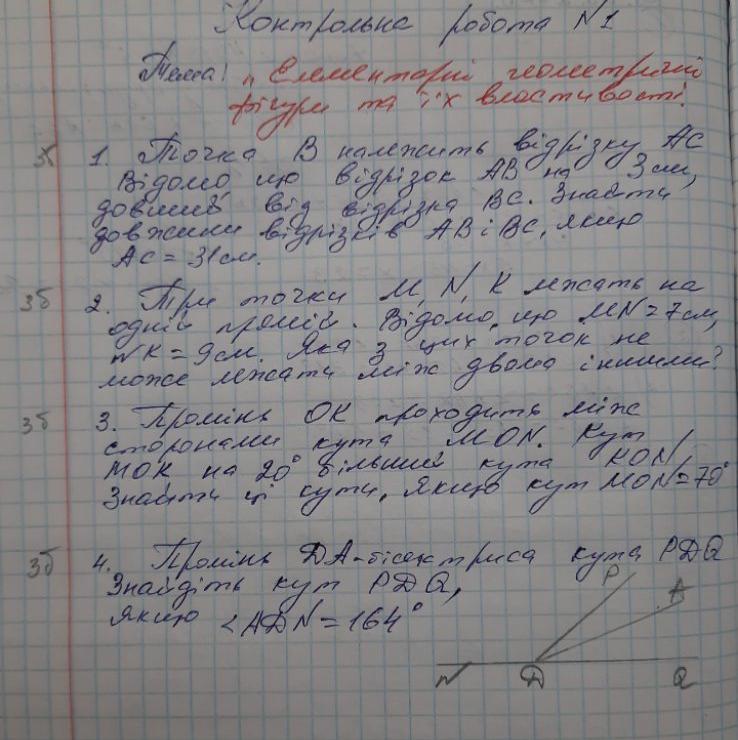 Контрольна робота N1
Тема: „Елементарні геометричні
фігури та їх властивості.
3б 1. Точка B належить відрізку AC
Відомо що відрізок AB на 3 см,
довший від відрізка BC. Знайти
довжини відрізків AB і BC, якщо
AC = 31 см.
3б 2. Три точки M, N, K лежать на
одній прямій. Відомо, що MN = 7 см,
NK = 9 см. Яка з цих точок не
може лежати між двома іншими?
3б 3. Промінь OK проходить між
сторонами кута MON. Кут
MOK на 20° більший кута KON,
Знайти ці кути, якщо кут MON = 70°
3б 4. Промінь DA - бісектриса кута PDQ
Знайдіть кут PDQ,
якщо <ADN = 164°
P
A
N D Q